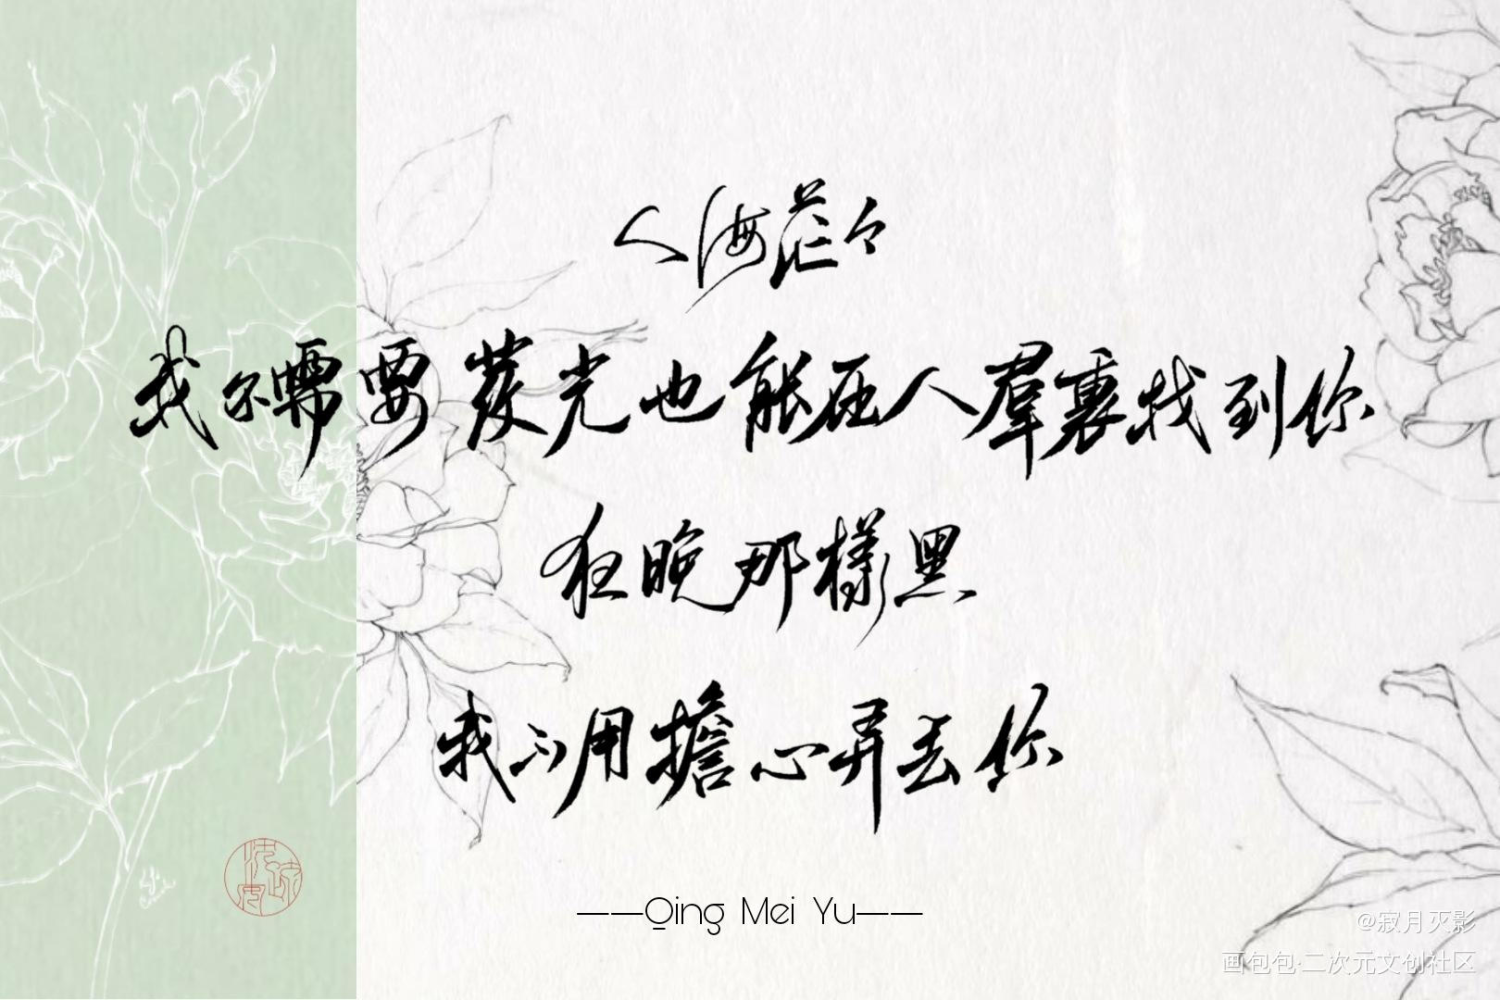 人海茫々
我尔需要发光也能在人羣裏找到你
夜晚那樣黑
我不用擔心弄丢你
——Qing Mei Yu——
@寂月灭影
画包包·二次元文创社区